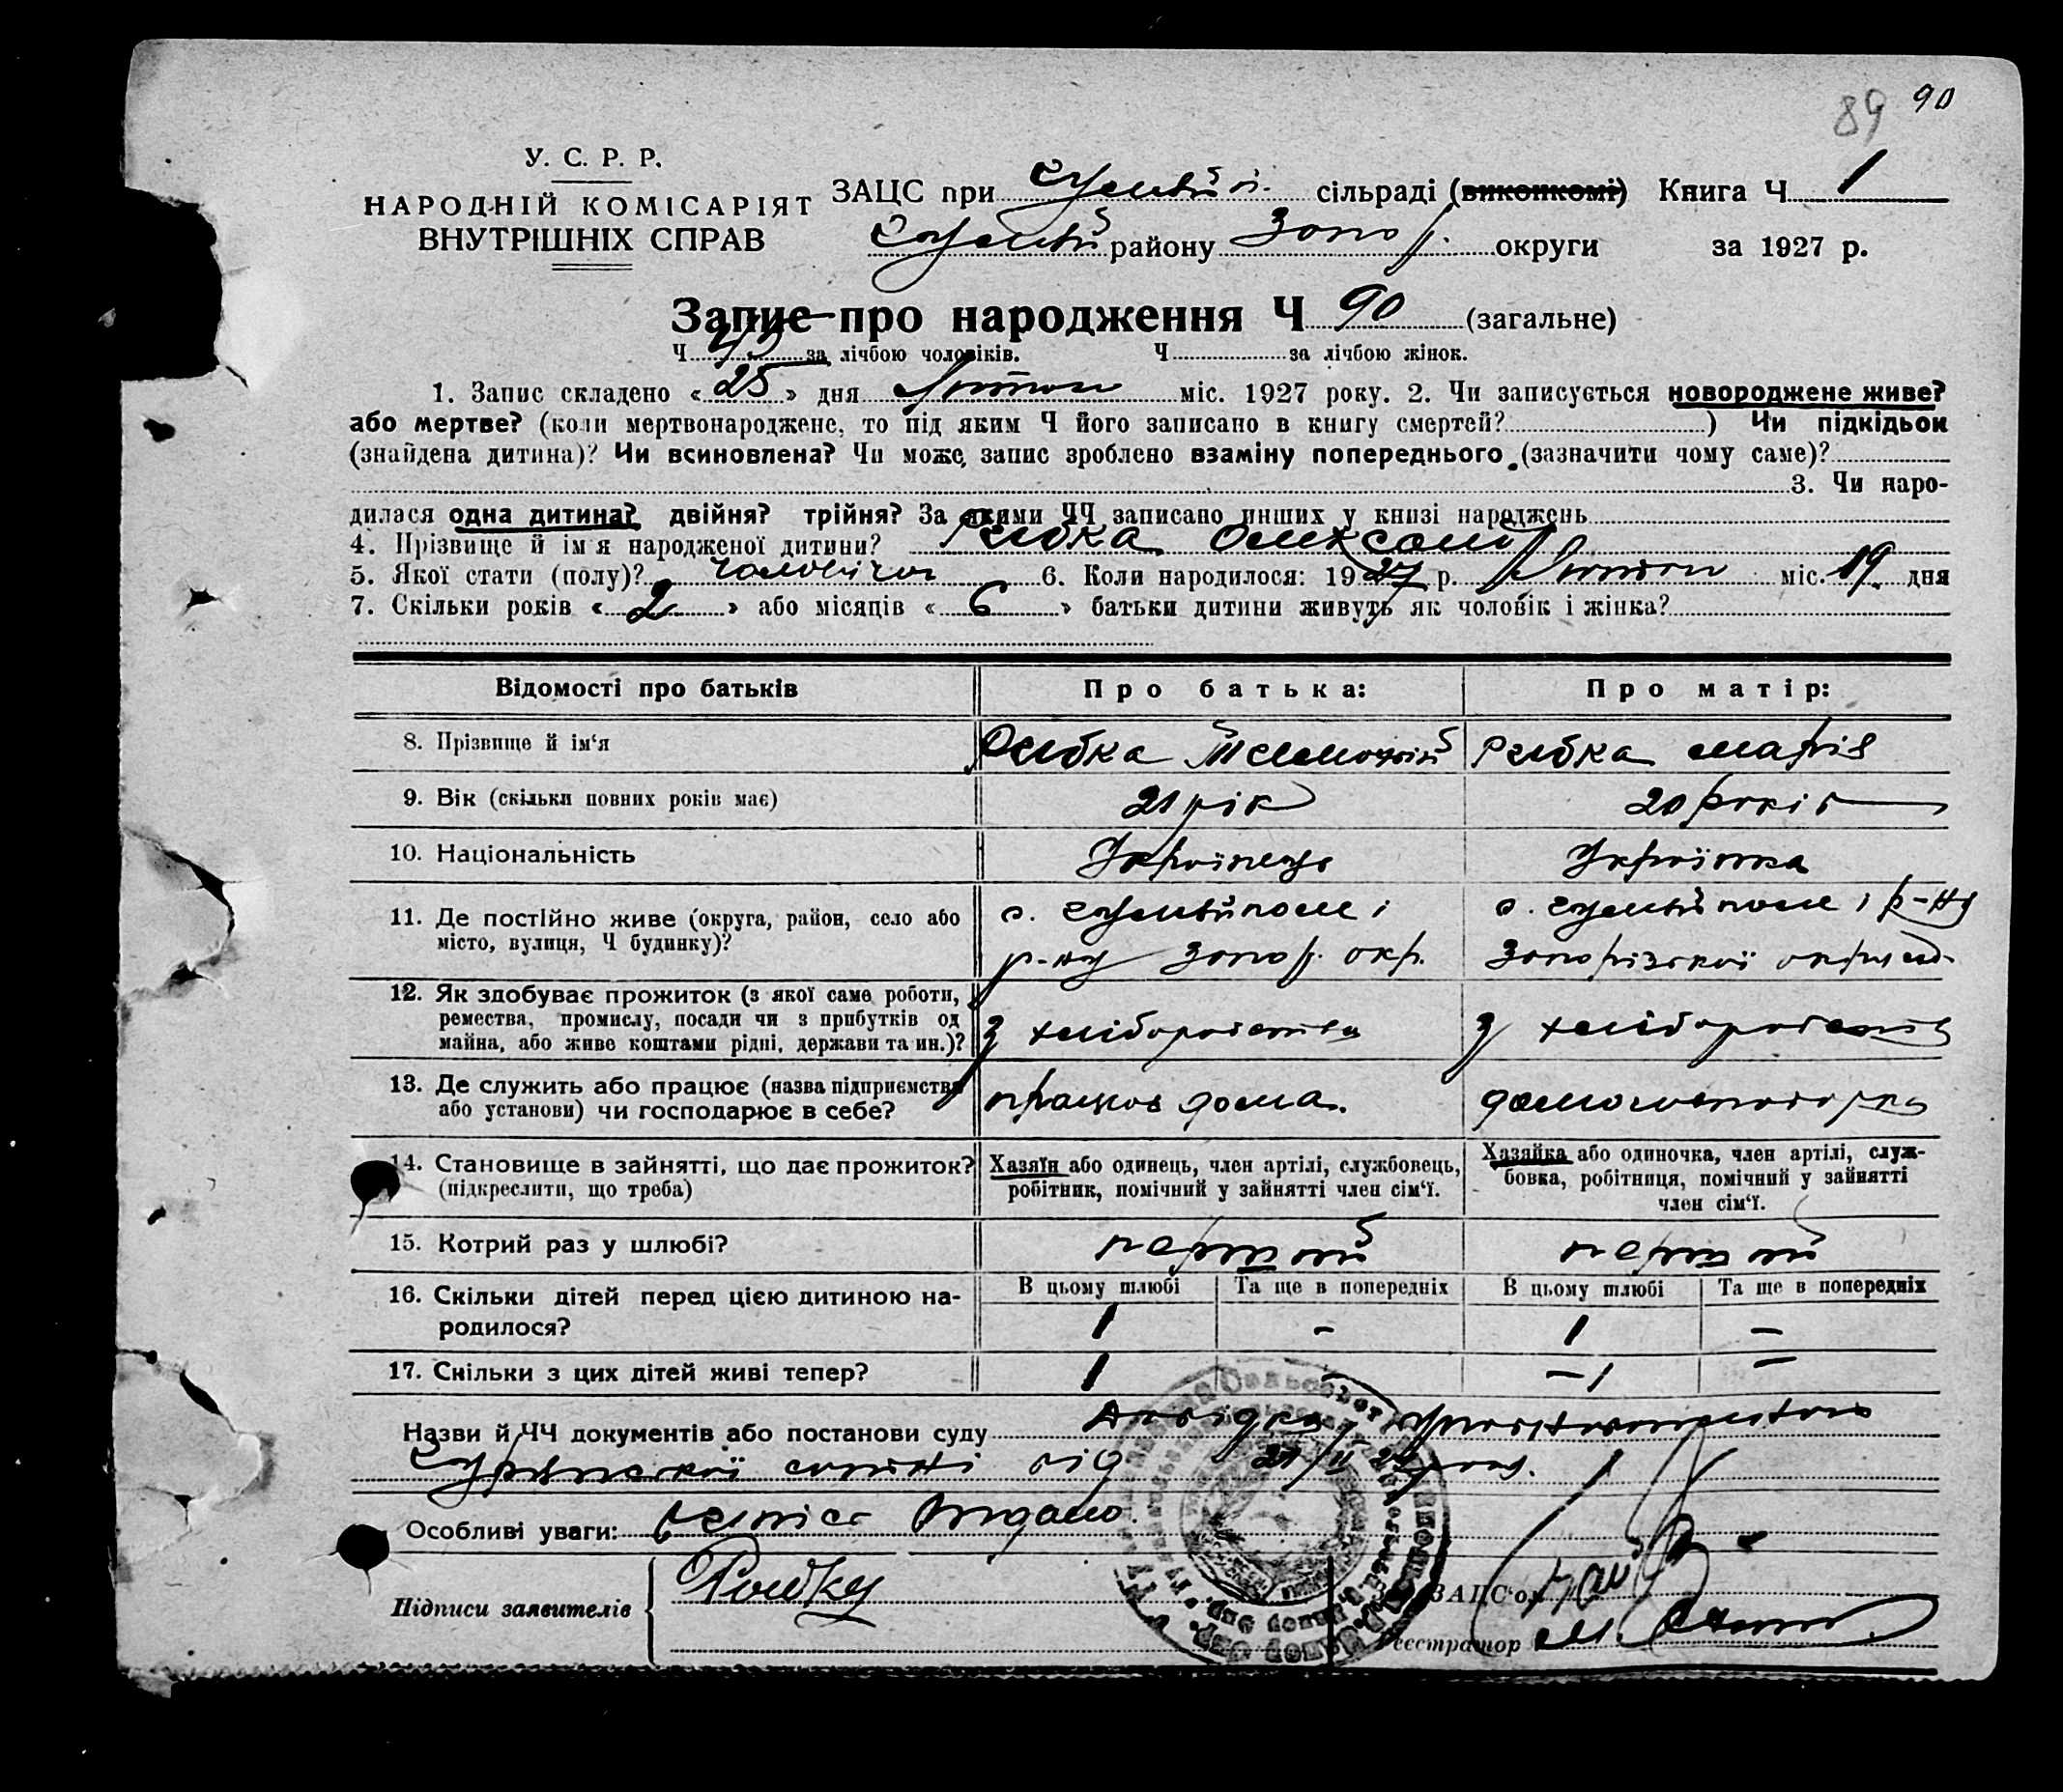 89 90
У. С. Р. Р.
НАРОДНІЙ КОМІСАРІЯТ
ВНУТРІШНІХ СПРАВ
ЗАЦС при сільраді (виконкомі) Книга Ч 1
району Запор. округи за 1927 р.
Запис про народження Ч 90 (загальне)
Ч за лічбою чоловіків. Ч за лічбою жінок.
1. Запис складено « 25 » дня Лютого міс. 1927 року. 2. Чи записується новороджене живе?
або мертве? (коли мертвонароджене, то під яким Ч його записано в книгу смертей? ) Чи підкідьок
(знайдена дитина)? Чи всиновлена? Чи може, запис зроблено взаміну попереднього (зазначити чому саме)?
3. Чи наро-
дилася одна дитина? двійня? трійня? За якими ЧЧ записано инших у книзі народжень
4. Прізвище й ім'я народженої дитини? Рибка Олександ
5. Якої стати (полу)? чоловічої 6. Коли народилося: 1927 р. Лютого міс. 19 дня
7. Скільки років « 2 » або місяців « 6 » батьки дитини живуть як чоловік і жінка?
Відомості про батьків Про батька: Про матір:
8. Прізвище й ім'я Рибка Рибка Марія
9. Вік (скільки повних років має) 21 рік 20 років
10. Національність Українець Українка
11. Де постійно живе (округа, район, село або
місто, вулиця, Ч будинку)?
с. Гуляйполе і
р-ну Запор. окр.
с. Гуляйполе і р-ну
Запорізської округи
12. Як здобуває прожиток (з якої саме роботи,
ремества, промислу, посади чи з прибутків од
майна, або живе коштами рідні, держави та ин.)?
з хліборобства з хліборобства
13. Де служить або працює (назва підприємства
або установи) чи господарює в себе?
працює дома. домогосподарка
14. Становище в зайнятті, що дає прожиток?
(підкреслити, що треба)
Хазяїн або одинець, член артілі, службовець,
робітник, помічний у зайнятті член сім'ї.
Хазяйка або одиночка, член артілі, служ-
бовка, робітниця, помічний у зайнятті
член сім'ї.
15. Котрий раз у шлюбі? перший перший
16. Скільки дітей перед цією дитиною на-
родилося?
В цьому шлюбі Та ще в попередніх В цьому шлюбі Та ще в попередніх
1 – 1 –
17. Скільки з цих дітей живі тепер? 1 – 1 –
Назви й ЧЧ документів або постанови суду Довідка
від
Особливі уваги: видано.
Підписи заявителів Рибка
ЗАЦС'ом
Реєстратор М.